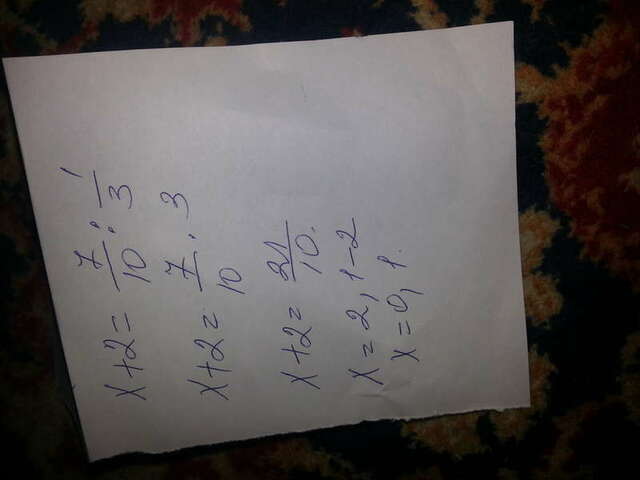 x+2= 7/10 : 1/3
x+2= 7/10 · 3
x+2= 21/10.
x=2,1-2
x=0,1.